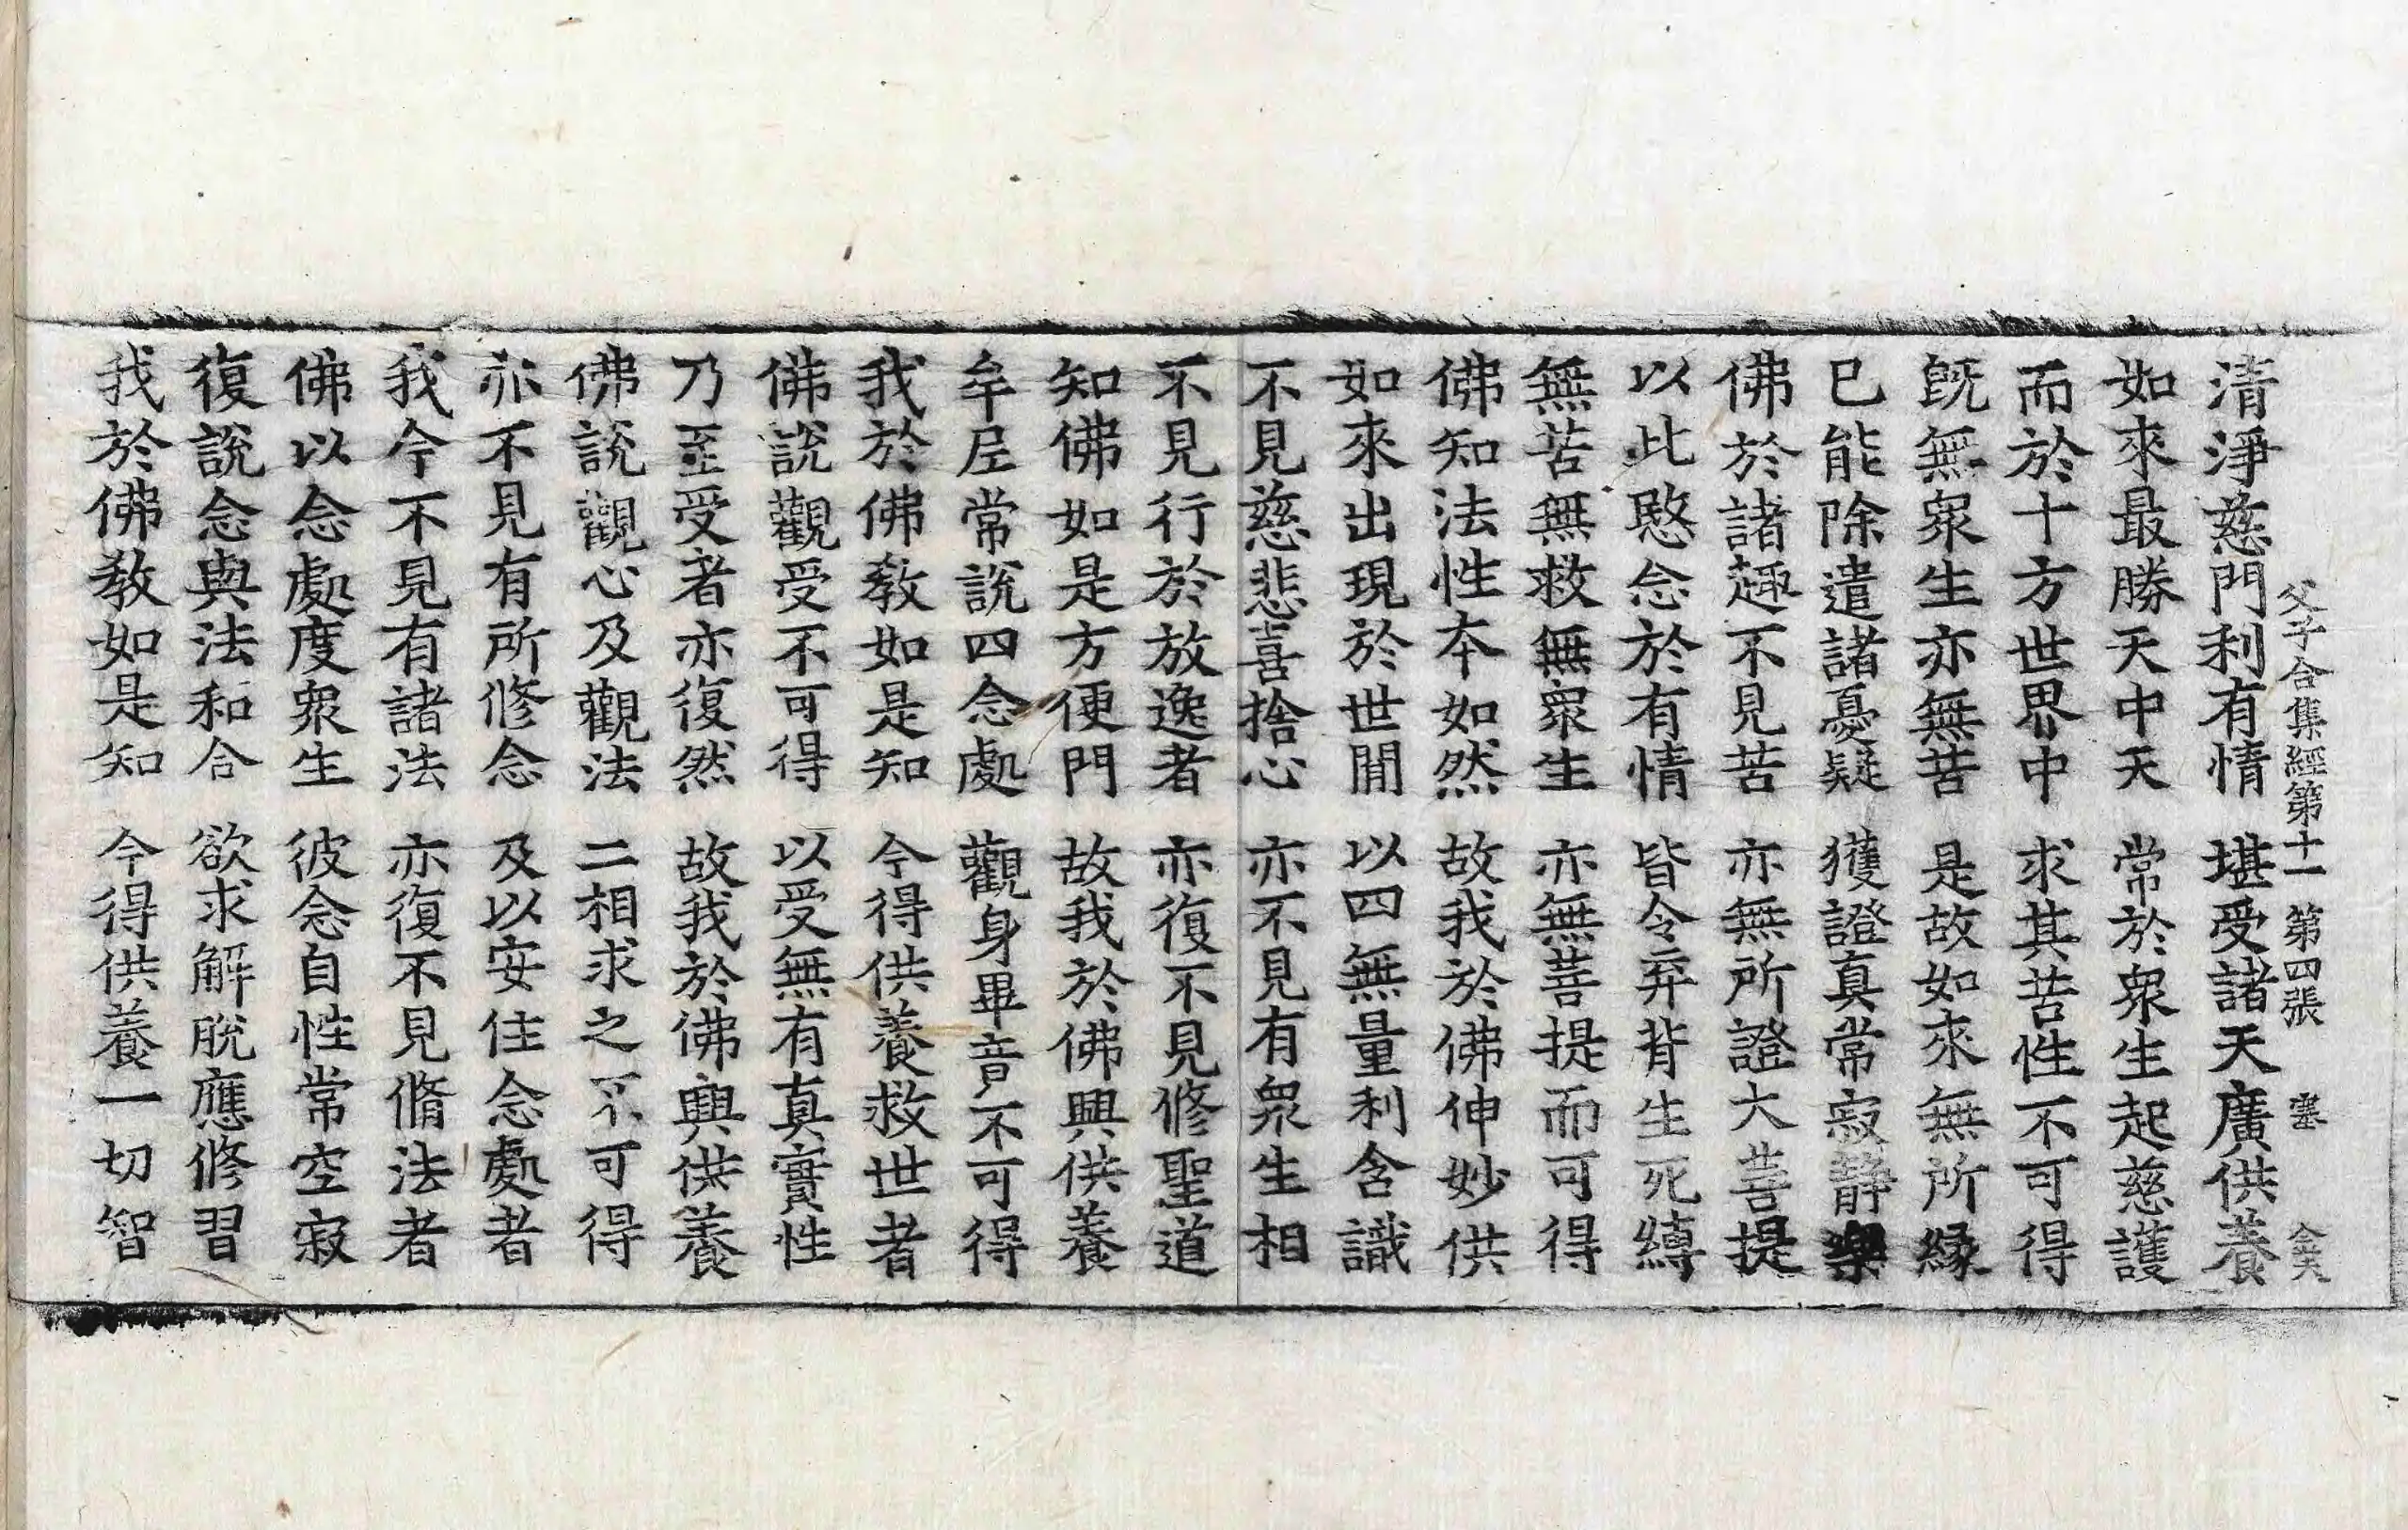 父子合集經第十一 第四張 塞
清淨慈門利有情 堪受諸天廣供養
如來最勝天中天 常於衆生起慈護
而於十方世界中 求其苦性不可得
旣無衆生亦無苦 是故如來無所縁
已能除遣諸憂疑 獲證真常寂静樂
佛於諸趣不見苦 亦無所證大菩提
以此愍念於有情 皆令弃背生死縛
無苦無救無衆生 亦無菩提而可得
佛知法性本如然 故我於佛伸妙供
如來出現於世閒 以四無量利含識
不見慈悲喜捨心 亦不見有衆生相
不見行於放逸者 亦復不見修聖道
知佛如是方便門 故我於佛興供養
牟尼常說四念處 觀身畢竟不可得
我於佛教如是知 今得供養救世者
佛說觀受不可得 以受無有真實性
乃至受者亦復然 故我於佛興供養
佛說觀心及觀法 二相求之不可得
亦不見有所修念 及以安住念處者
我今不見有諸法 亦復不見脩法者
佛以念處度衆生 彼念自性常空寂
復說念與法和合 欲求解脫應修習
我於佛教如是知 今得供養一切智